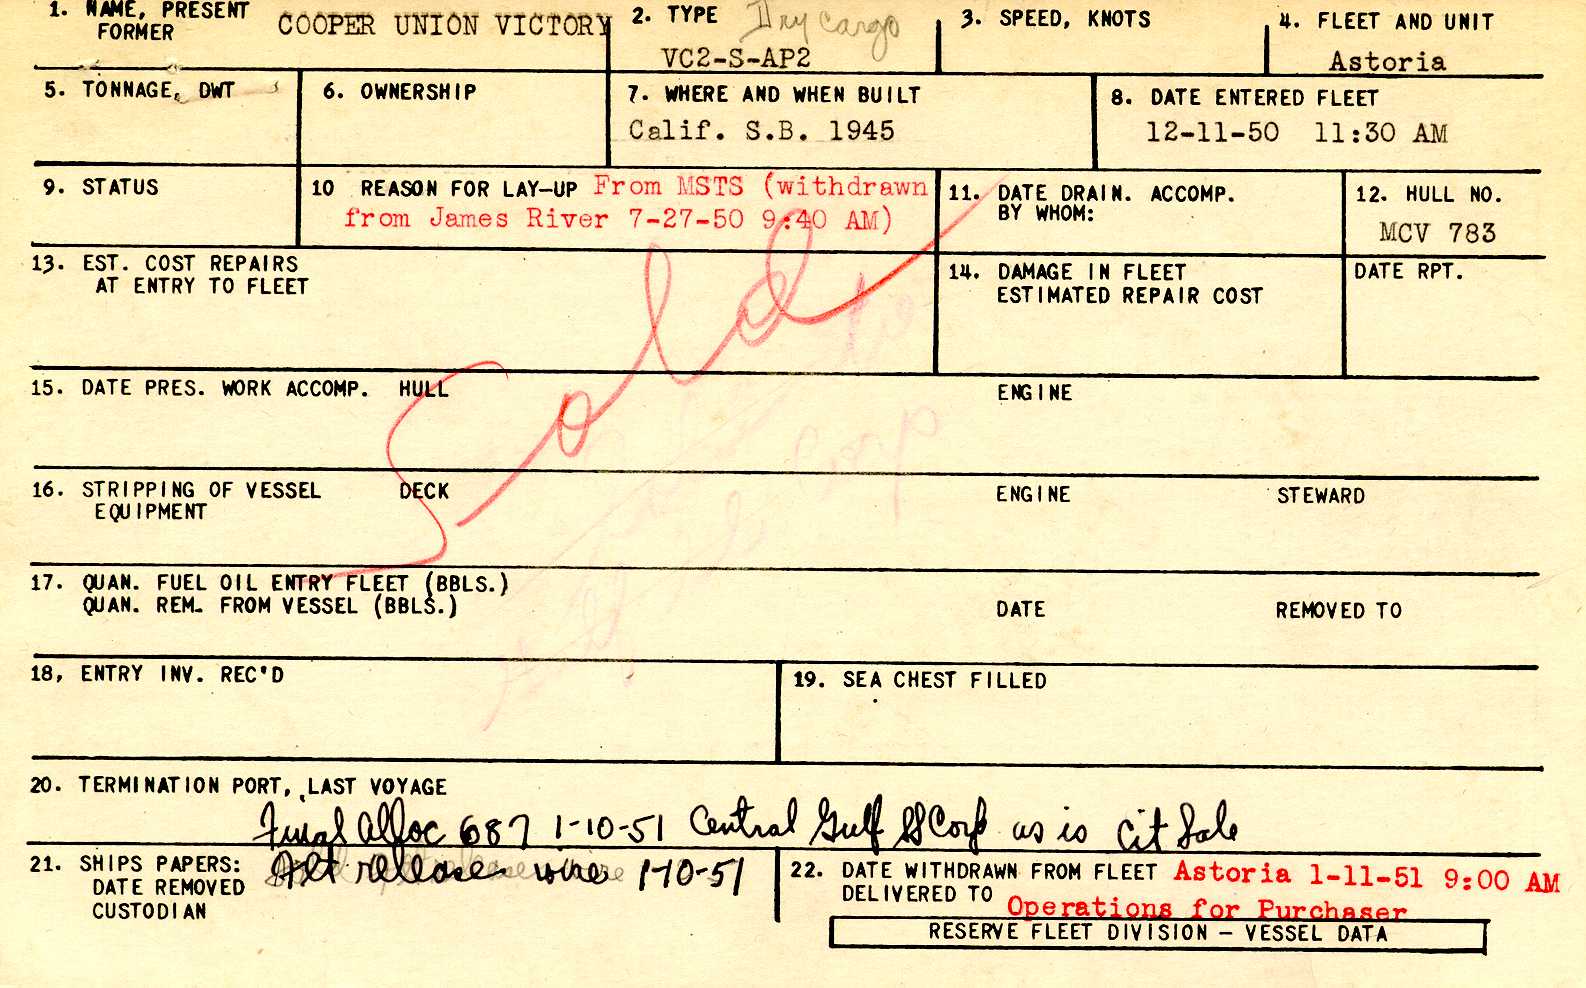 1. NAME, PRESENT
FORMER
COOPER UNION VICTORY
2. TYPE Dry Cargo
VC2-S-AP2
3. SPEED, KNOTS
4. FLEET AND UNIT
Astoria
5. TONNAGE, DWT
6. OWNERSHIP
7. WHERE AND WHEN BUILT
Calif. S.B. 1945
8. DATE ENTERED FLEET
12-11-50 11:30 AM
9. STATUS
10 REASON FOR LAY-UP From MSTS (withdrawn
from James River 7-27-50 9:40 AM)
11. DATE DRAIN. ACCOMP.
BY WHOM:
12. HULL NO.
MCV 783
13. EST. COST REPAIRS
AT ENTRY TO FLEET
14. DAMAGE IN FLEET
ESTIMATED REPAIR COST
DATE RPT.
Sold
15. DATE PRES. WORK ACCOMP. HULL
ENGINE
16. STRIPPING OF VESSEL DECK
EQUIPMENT
ENGINE
STEWARD
17. QUAN. FUEL OIL ENTRY FLEET (BBLS.)
QUAN. REM. FROM VESSEL (BBLS.)
DATE
REMOVED TO
18, ENTRY INV. REC'D
19. SEA CHEST FILLED
20. TERMINATION PORT, LAST VOYAGE
Final Alloc 687 1-10-51 Central Gulf SS Corp as is Cit Sale
21. SHIPS PAPERS:
DATE REMOVED
CUSTODIAN
release wire 1-10-51
22. DATE WITHDRAWN FROM FLEET Astoria 1-11-51 9:00 AM
DELIVERED TO Operations for Purchaser
RESERVE FLEET DIVISION – VESSEL DATA